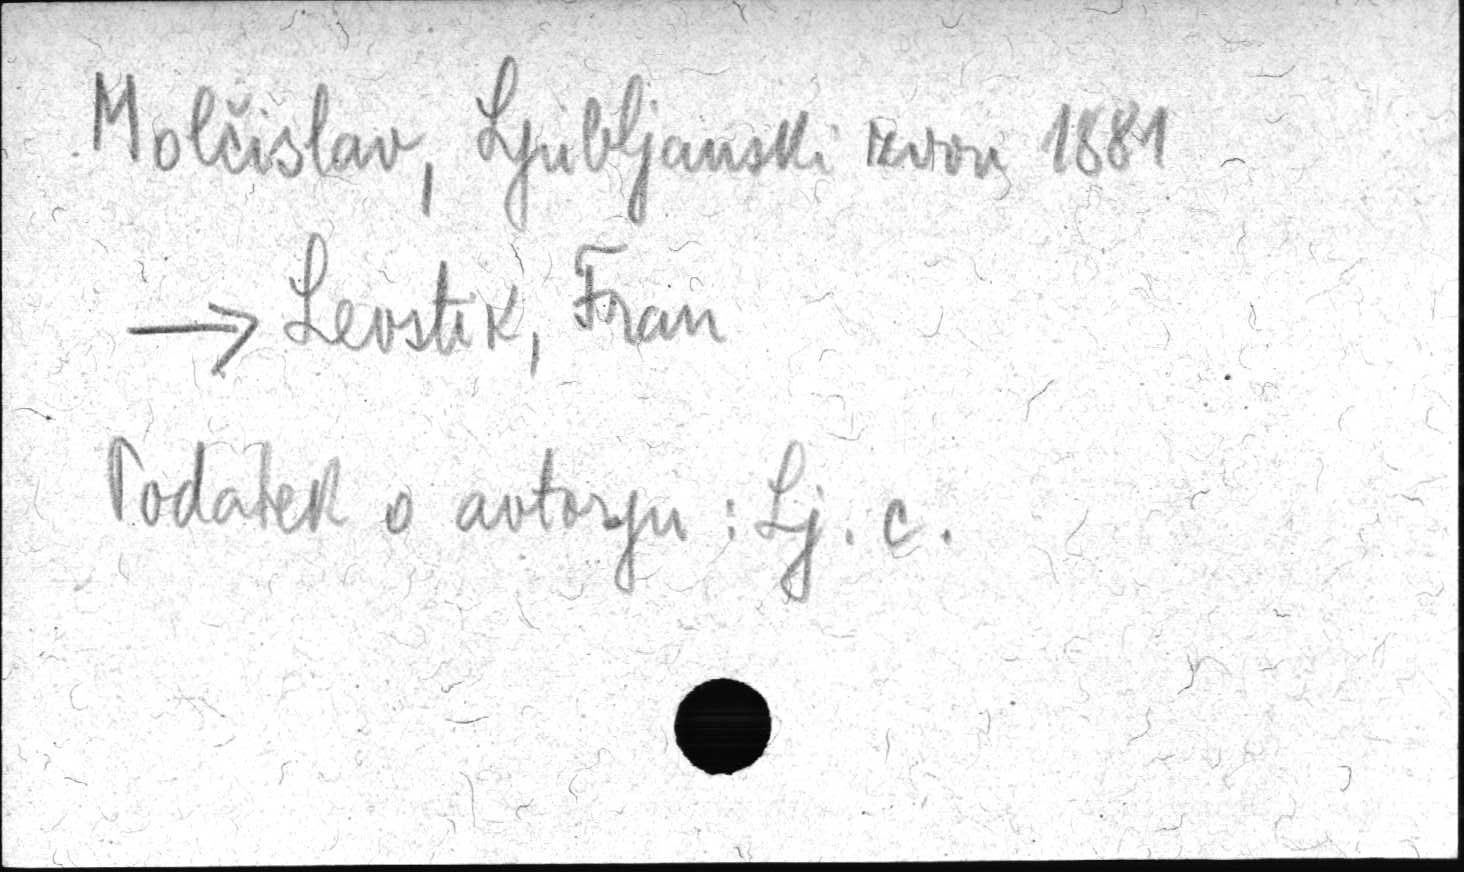 Molčislav, Ljubljanski zvon 1881
→ Levstik, Fran
Podatek o avtorju : Lj. c.